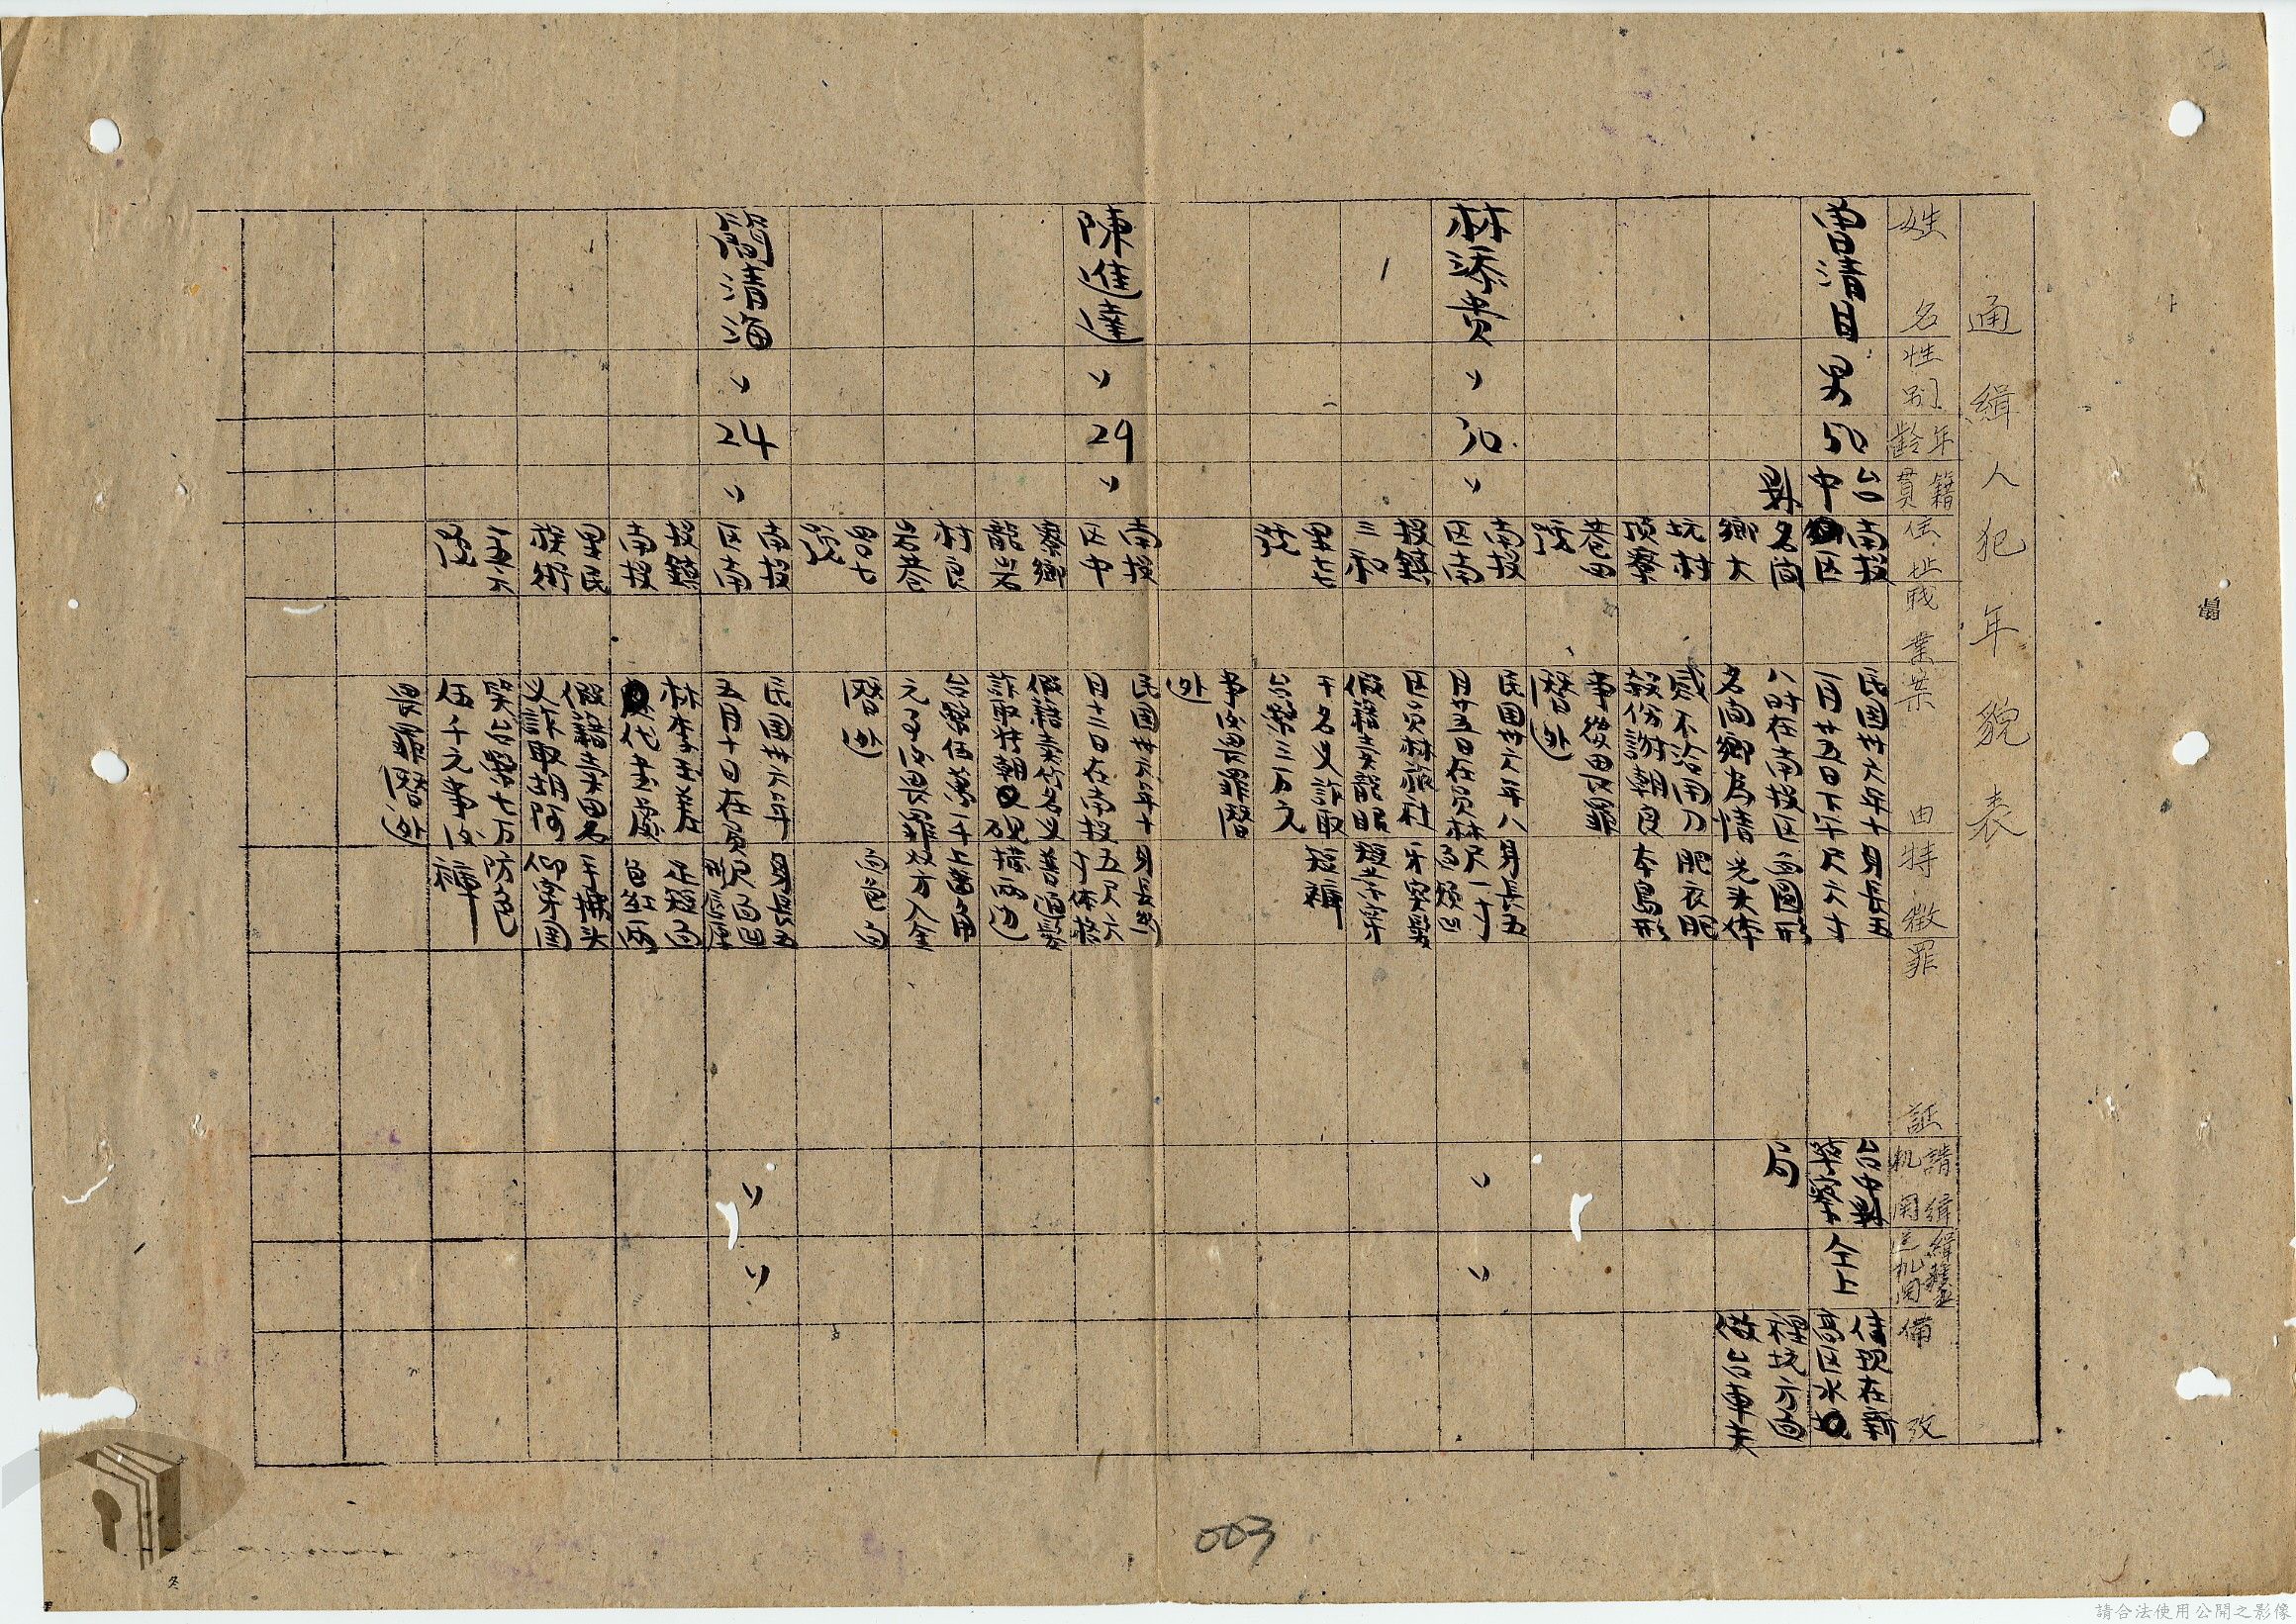 通緝人犯年貌表
姓名
性別
年齡
籍貫
住址
職業
案由
特徵
罪証
請緝机関
緝獲送机関
備攷
曾清自
男
50
台
中
縣
南投
区
名间
鄉大
坑村
頂寮
巷四
号
民国卅六年十
一月廿五日下午
八時在南投区
名间鄉為情
感不洽用刀
殺伤謝朝良
事後畏罪
潛逃
身長五
尺六寸
面圓形
光头体
肥衣服
本島形
台中縣
警察
局
仝上
住現在新
高区水
裡坑方面
做台車夫
林添貴
〃
30
〃
南投
区南
投鎮
三和
里七七
号
民国卅六年八
月廿五日在員林
区員林旅社
假籍卖龍眼
干名义詐取
台幣三万元
事後畏罪潛
逃
身長五
尺一寸
面頰凹
牙突髮
短常穿
短褲
〃
〃
陳進達
〃
29
〃
南投
区中
寮鄉
龍岩
村良
岩巷
四七
号
民国卅六年十
月十二日在南投
假籍卖竹名义
詐取許朝硯
台幣伍萬一千
元事後畏罪
潛逃
身長
五尺六
寸体格
普通髮
撲兩边
上齒角
效方入金
面色白
簡清海
〃
24
〃
南投
区南
投鎮
南投
里民
族街
一五六
号
民国卅六年
五月十日在員
林李玉差
代書處
假籍卖田名
义詐取胡阿
笑台幣七万
伍千元事後
畏罪潛逃
身長五
尺面凹
嘴唇厚
足短面
色红兩
手撫头
仰穿国
防色
褲
〃
〃
003
請合法使用公開之影像